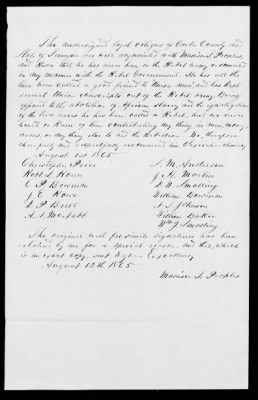 The undersigned loyal citizens of Carter County and
State of Tennessee are well acquainted with Madison L. Peoples,
and know that he has never been in the Rebel Army or connected
in any manner with the Rebel Government. He has all the
time been called a good friend to Union men, and has kept
several Union conscripts out of the Rebel army. Being
opposed to the abolition of African Slavery and the
of the two races he has been called a Rebel, but we never
heard or knew of him contributing any thing in men, money,
arms, or any thing else to aid the Rebellion. We, therefore
cheerfully and respectfully recommend him to Executive clemency.
August 1st 1865.
Christopher Price
L. M. Anderson
Robt L. Rowe
J. H. Martin
E P Bowman
D. H. Smalling
J. E. Rowe
William Davidson
L P Buell
A. S. Johnson
A. J. McNabb
William Baker
Wm J. Smalling
The original with fac-simile signatures has been
retained by me for a special reason, and this, which
is an exact copy, sent to your Excellency.
August 12th 1865
Madison L. Peoples